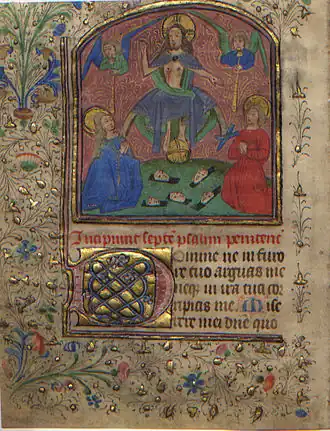 Incipiunt septē psalmi penitenc
Domine ne in furo
re tuo arguas me
neq; in ira tua cor
ripias me. Mise
rere mei dñe quo